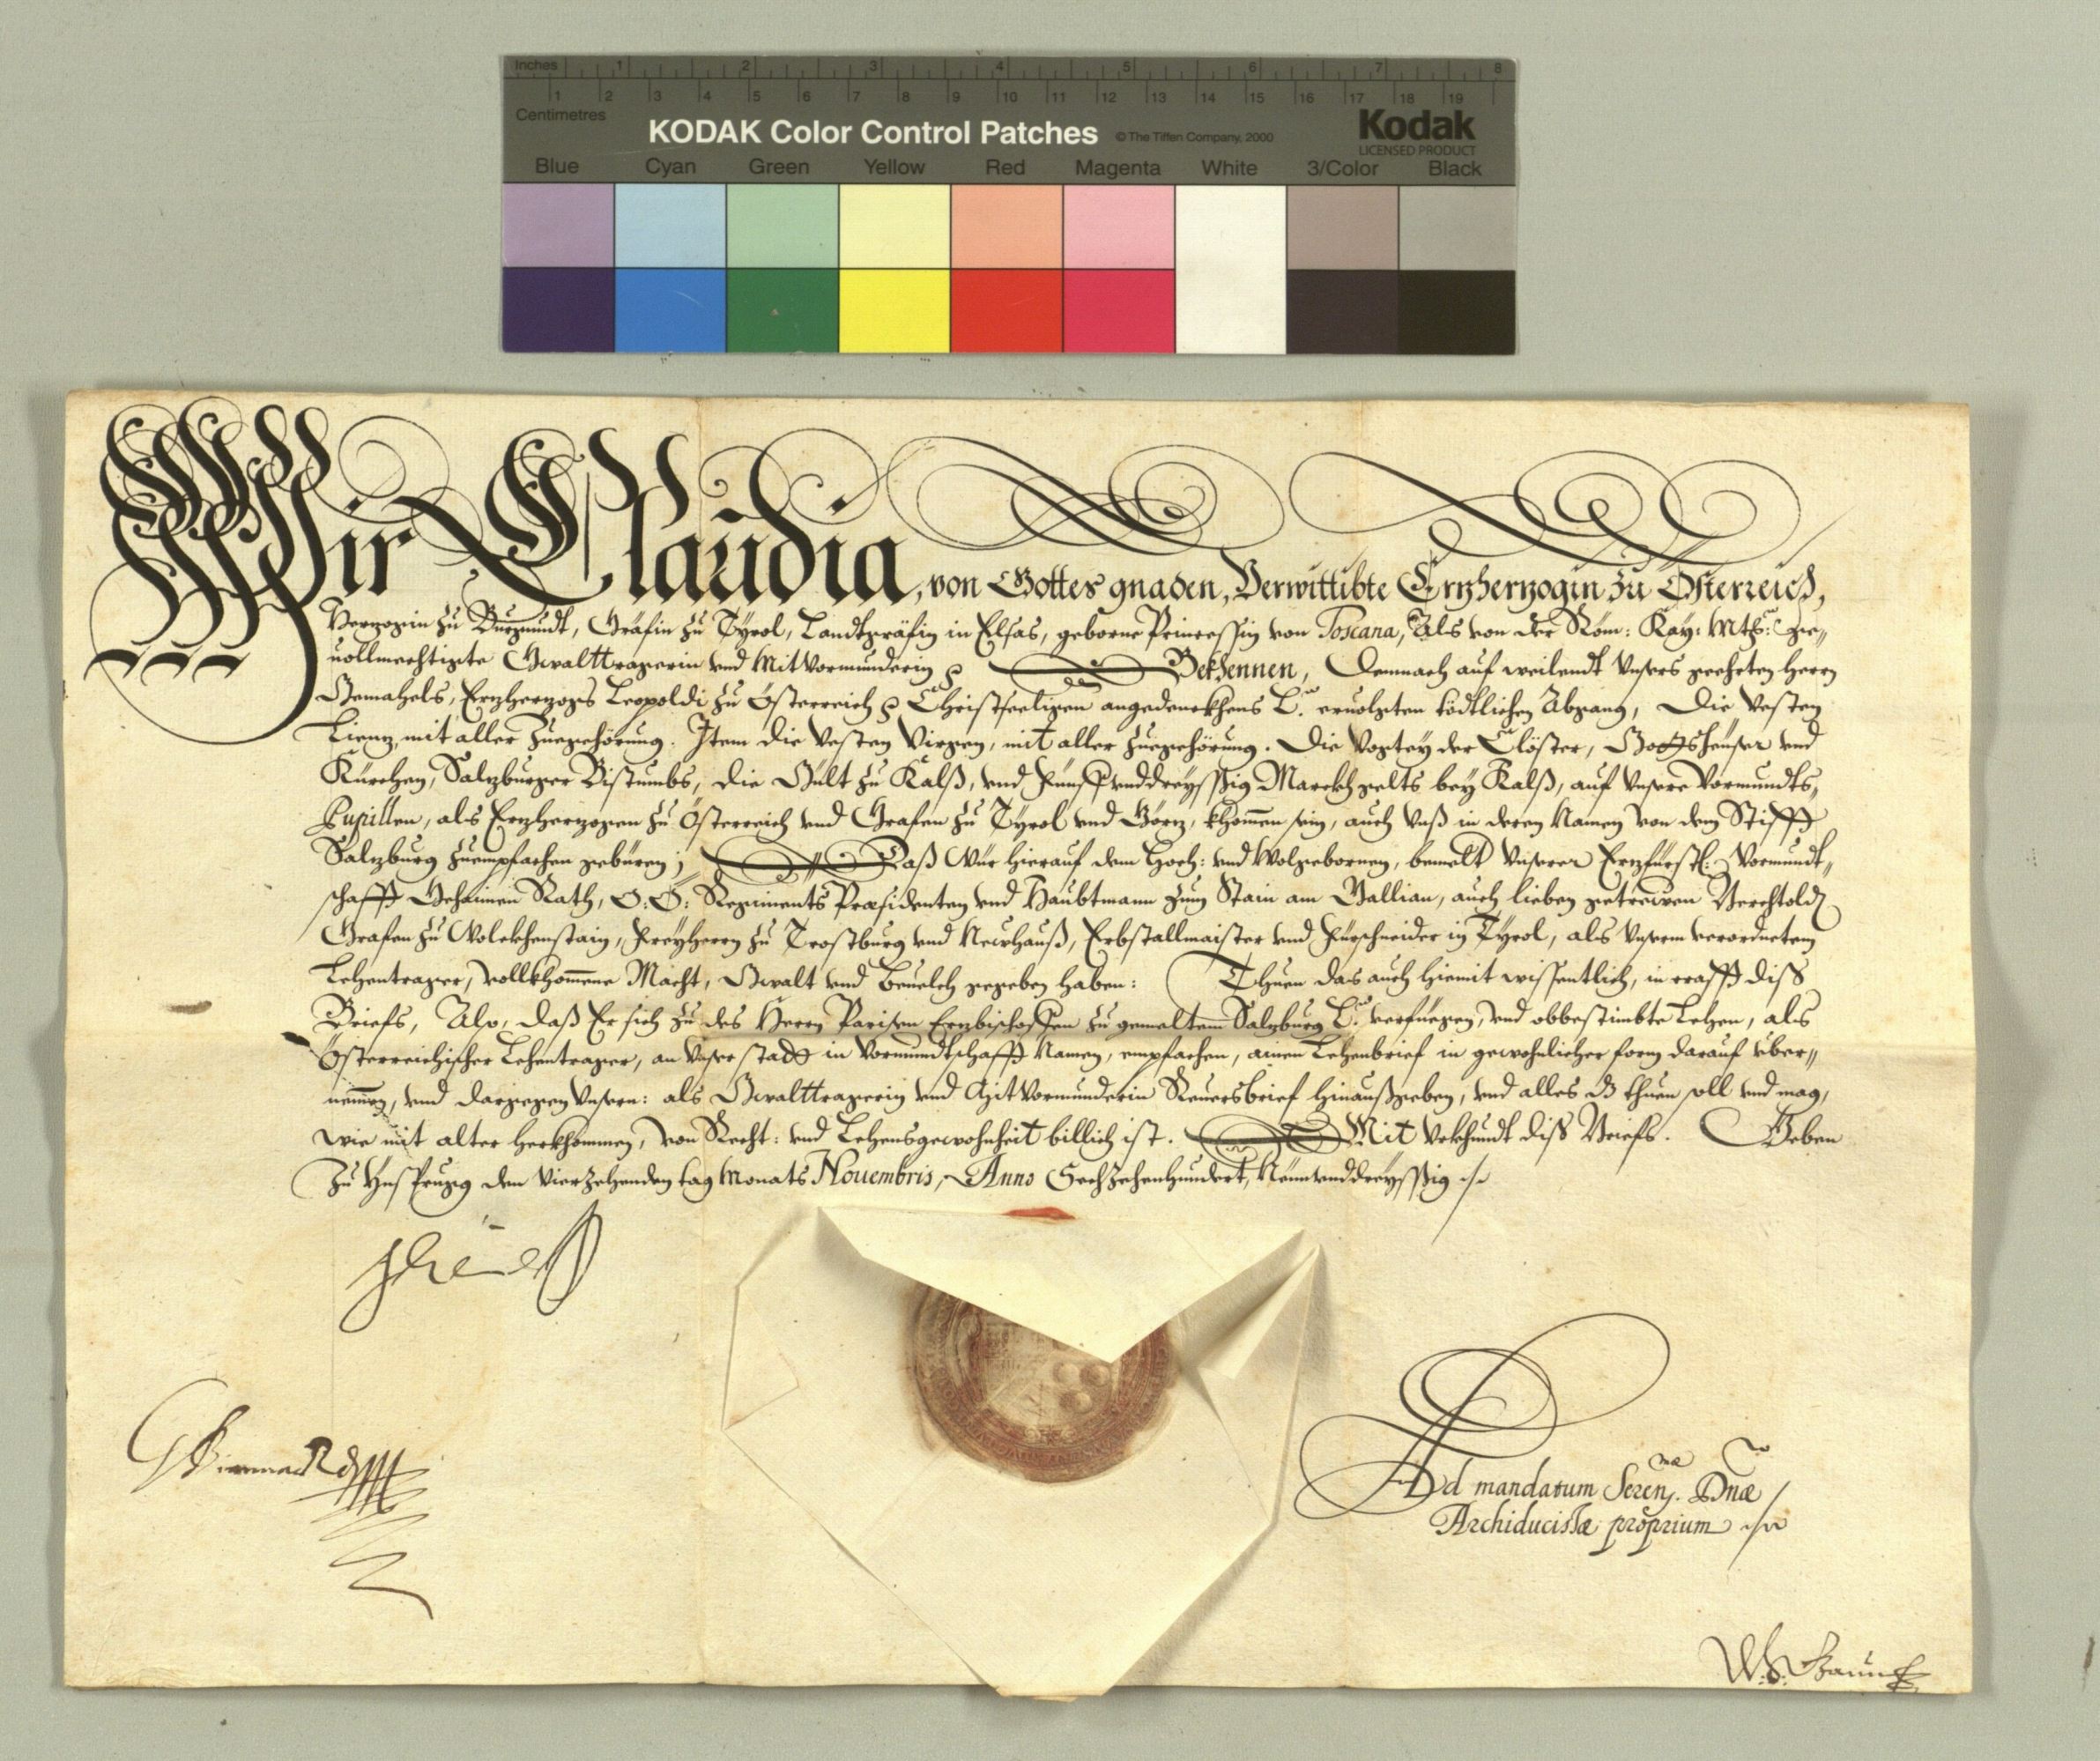 Inches 1 2 3 4 5 6 7 8
1 2 3 4 5 6 7 8 9 10 11 12 13 14 15 16 17 18 19
Centimetres
KODAK Color Control Patches © The Tiffen Company, 2000 Kodak
LICENSED PRODUCT
Blue Cyan Green Yellow Red Magenta White 3/Color Black
Wir Claudia, von Gottes gnaden, Verwittibte Erzherzogin zu Össterreich,
Herzogin zu Burgundt, Gräfin zu Tyrol, Landtgräfin in Elsas, geborne Princessin von Toscana, Als von der Röm: Kay: Mtß: ge„
uollmechtigte Gwalttragerin vnd Mitvormunderin Bekennen, Demnach auf weilendt Vnsers geehrten Herrn
Gemahels, Erzherzogs Leopoldi zu Össterreich Christseeligen angedenckhens L. eruolgten tödtlichen Abgang, Die Vesten
Lienz, mit aller Zuegehörung. Item die Vesten Virgen, mit aller Zuegehörung. Die Vogtey der Clöster, Gottsheuser vnd
Kürchen, Salzburger Bistumbs, die Gült zu Kalß, vnd Fünfvnddreyssig Marckh gelts bey Kalß, auf Vnsere Vormundts„
Pupillen, als Erzherzogen zu Össterreich vnd Grafen zu Tyrol vnd Görz, khomen sein, auch Vnß in deren Namen von dem Stifft
Salzburg zuempfachen gebüren; Daß Wür hierauf dem Hoch: vnd Wolgebornen, bemelt Vnserer Erzfürstl: Vormundt„
schafft Gehaimen Rath, O:Ö: Regiments Præsidenten vnd Haubtmann zum Stain am Gallian, auch lieben getrewen Berchtold
Grafen zu Wolckhenstain, Freyherrn zu Trostburg vnd Newhauß, Erbstallmaister vnd Fürschneider in Tyrol, als Vnserm verordneten
Lehentrager, vollkhomene Macht, Gwalt vnd Beuelch gegeben haben: Thuen das auch hiemit wissentlich, in crafft diss
Briefs, Also, daß Er sich zu des Herrn Parisen Erzbischoffen zu gemeltem Salzburg L. verfüegen, vnd obbestimbte Lehen, als
Össterreichischer Lehentrager, an Vnser statt in Vormundtschafft Namen, empfachen, ainen Lehenbrief in gewohnlicher form darauf über„
nemen, vnd dargegen Vnsern: als Gwalttragerin vnd Mitvormunderin Reuersbrief hinaußgeben, vnd alles thuen soll vnd mag,
wie mit alter herkhommen, von Recht: vnd Lehensgewohnheit billich ist. Mit Vrkhundt diss Briefs. Geben
Zu Ynsprugg den Vierzehenden tag Monats Nouembris, Anno Sechzehenhundert, Neunvnddreyssig
Ad mandatum Seren.mæ Dnæ
Archiducissæ proprium